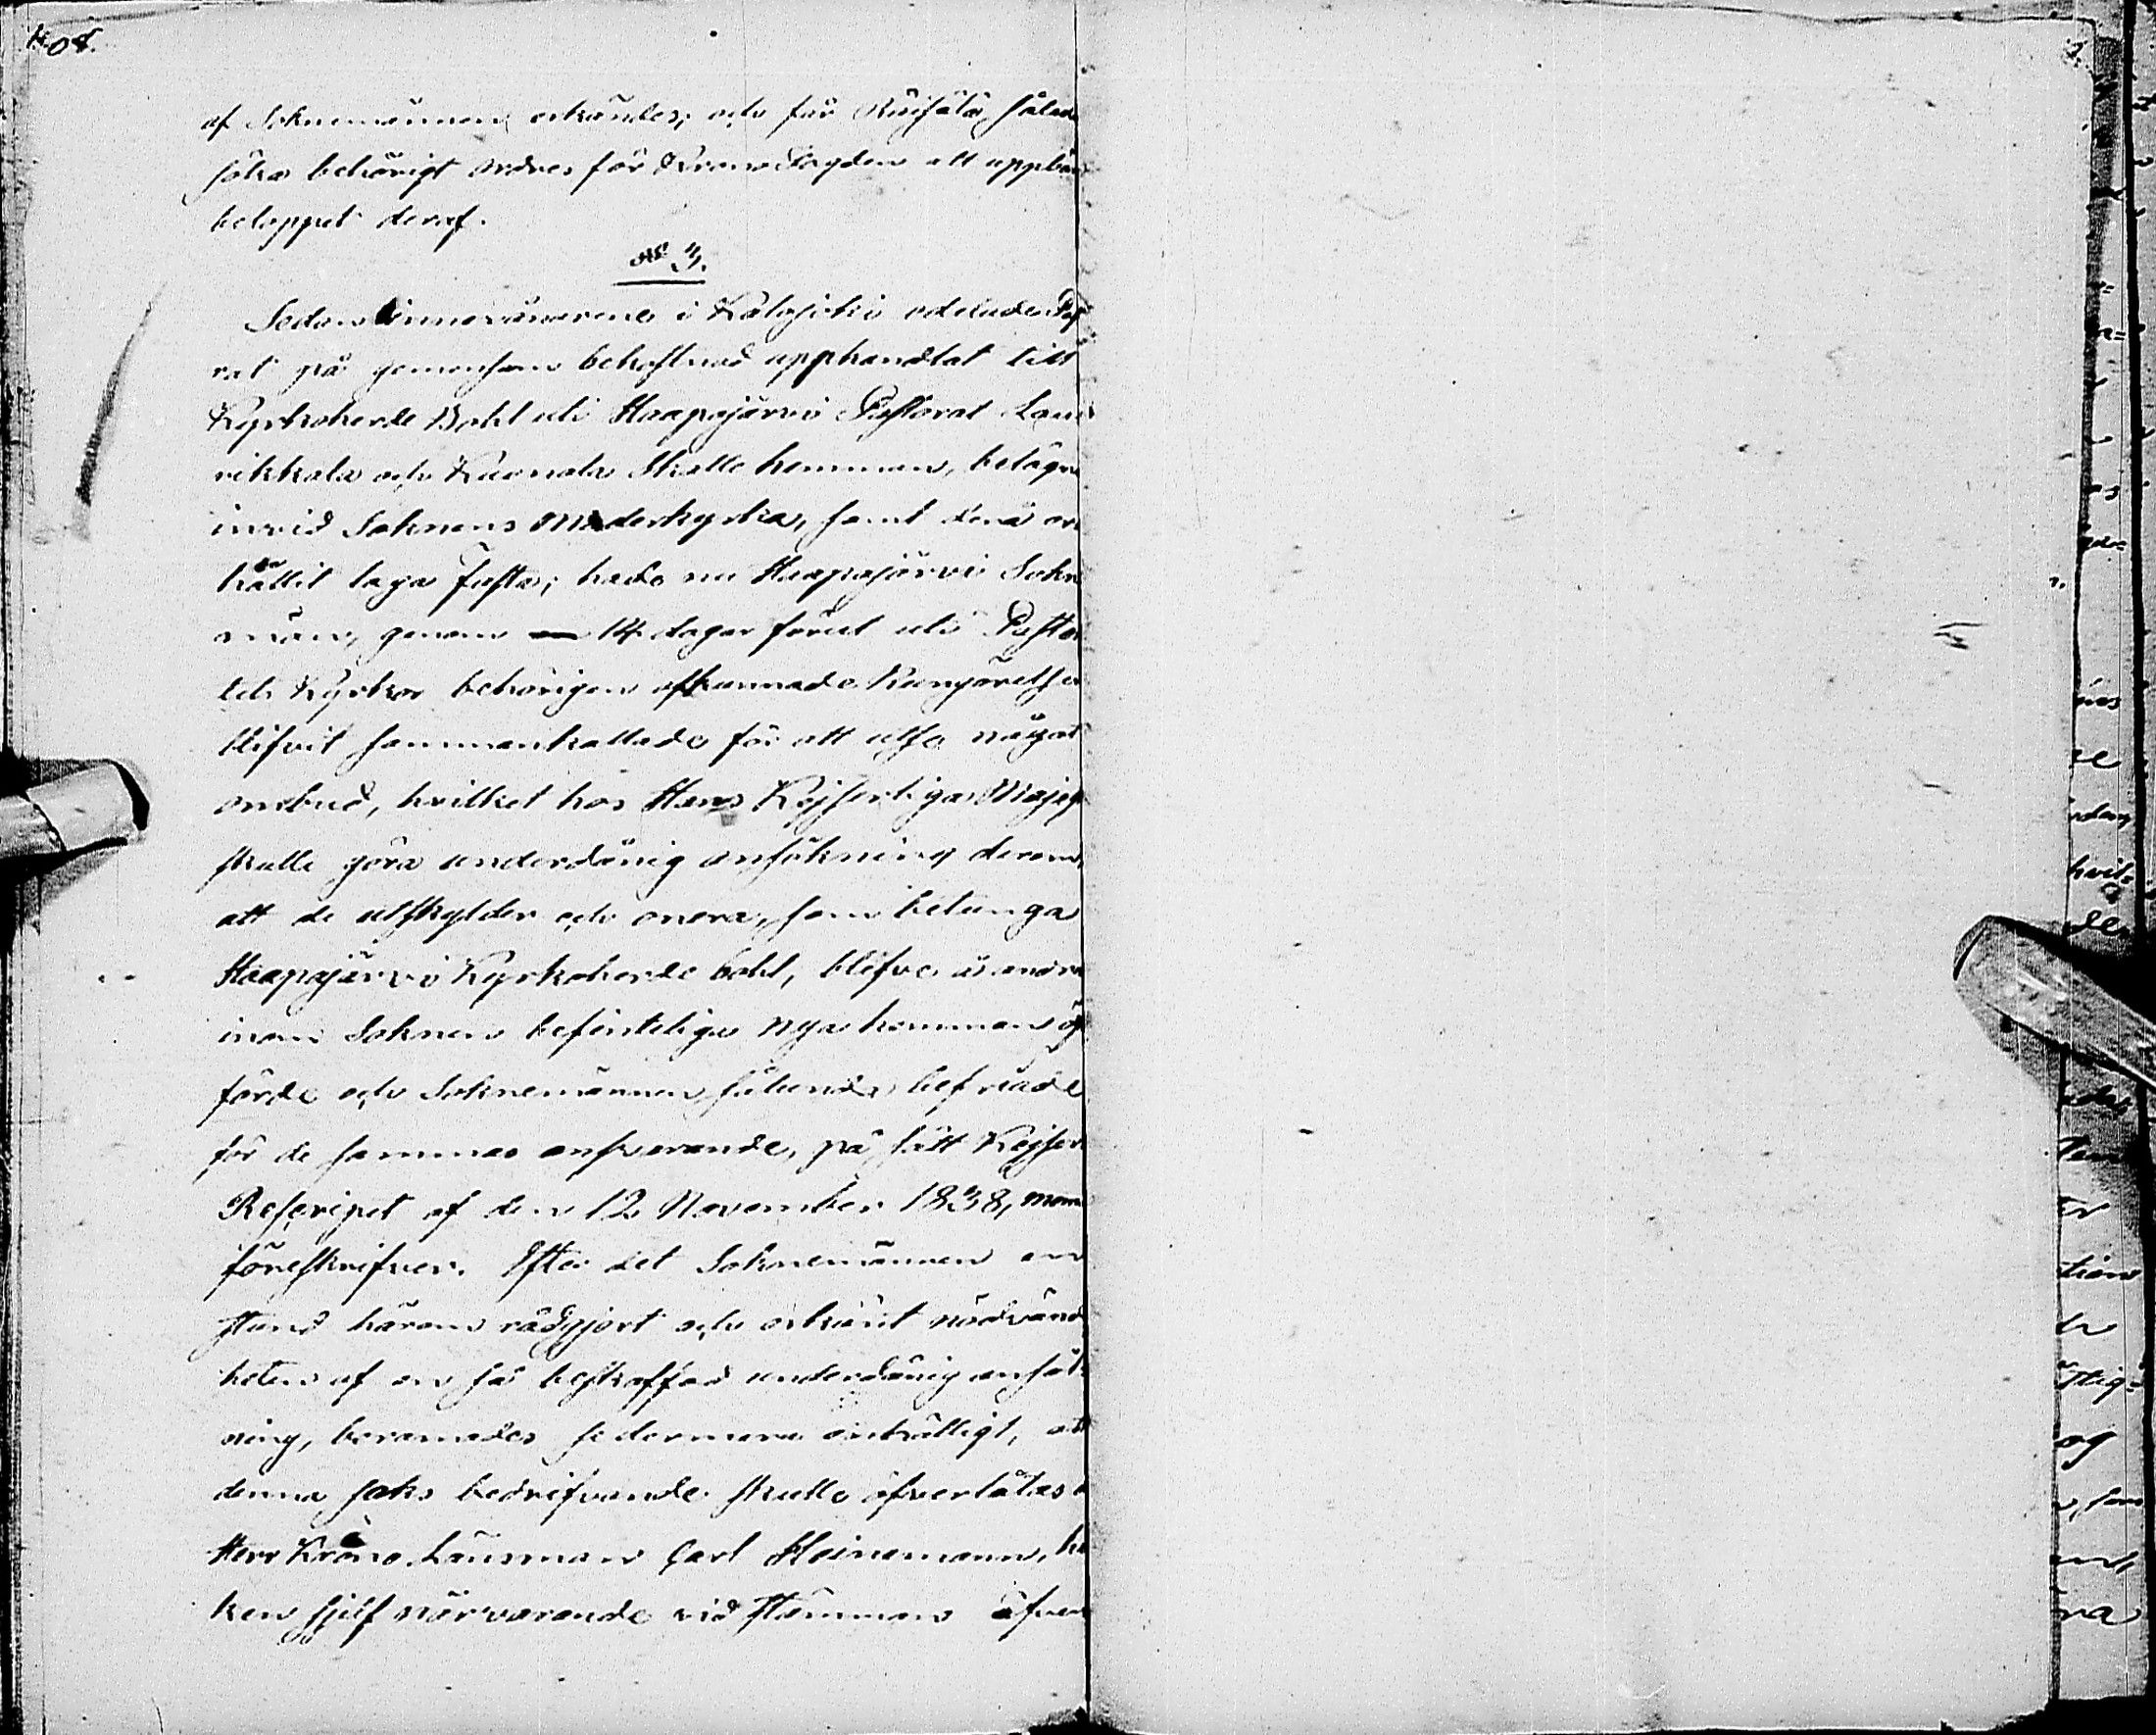 408.
af Soknemännen erkändes; och får Ruisåla således
söka behörigt ordres för KronoFogden att uppbära
beloppet deraf.
№ 3.
Sedan innevånarena i Kalajoki odelade Past
rat på gemensam bekostnad upphandlat till
Kyrkoherde Bohl uti Haapajärvi Pastorat Lau
rikkala och Kuonala Skatte hemman, belägne
invid Soknens Moderkyrka, samt derå er
hållit laga fasta; hade nu Haapajärvi Sokn
män, genom 14 dagar förut uti Pasto
tets Kyrkor behörigen afkunnade Kungörelser
blifvit sammankallade för att utse något
ombud, hvilket hos Hans Kejserliga Majest
skulle göra underdånig ansökning derom,
att de utskylder och onera, som betunga
Haapajärvi Kyrkoherde bohl, blefve å andra
inom Soknen befinteliga nya hemman öf
förde och Soknemännen sålunda befriade
för de sammas ansvarande, på sätt Kejser
Rescriptet af den 12 November 1838, mom
föreskrifver. Efter det Soknemännen en
stund härom rådgjort och erkänt nödvänd
heten af en så beskaffad underdånig ansök
ning, beramades sedermera enhälligt, att
denna saks bedrifvande skulle öfverlåtas
Herr Krono Länsman Carl Heinemann, hi
ken sjelf närvarande vid stämman äfven
hvil=
tion
og
ra